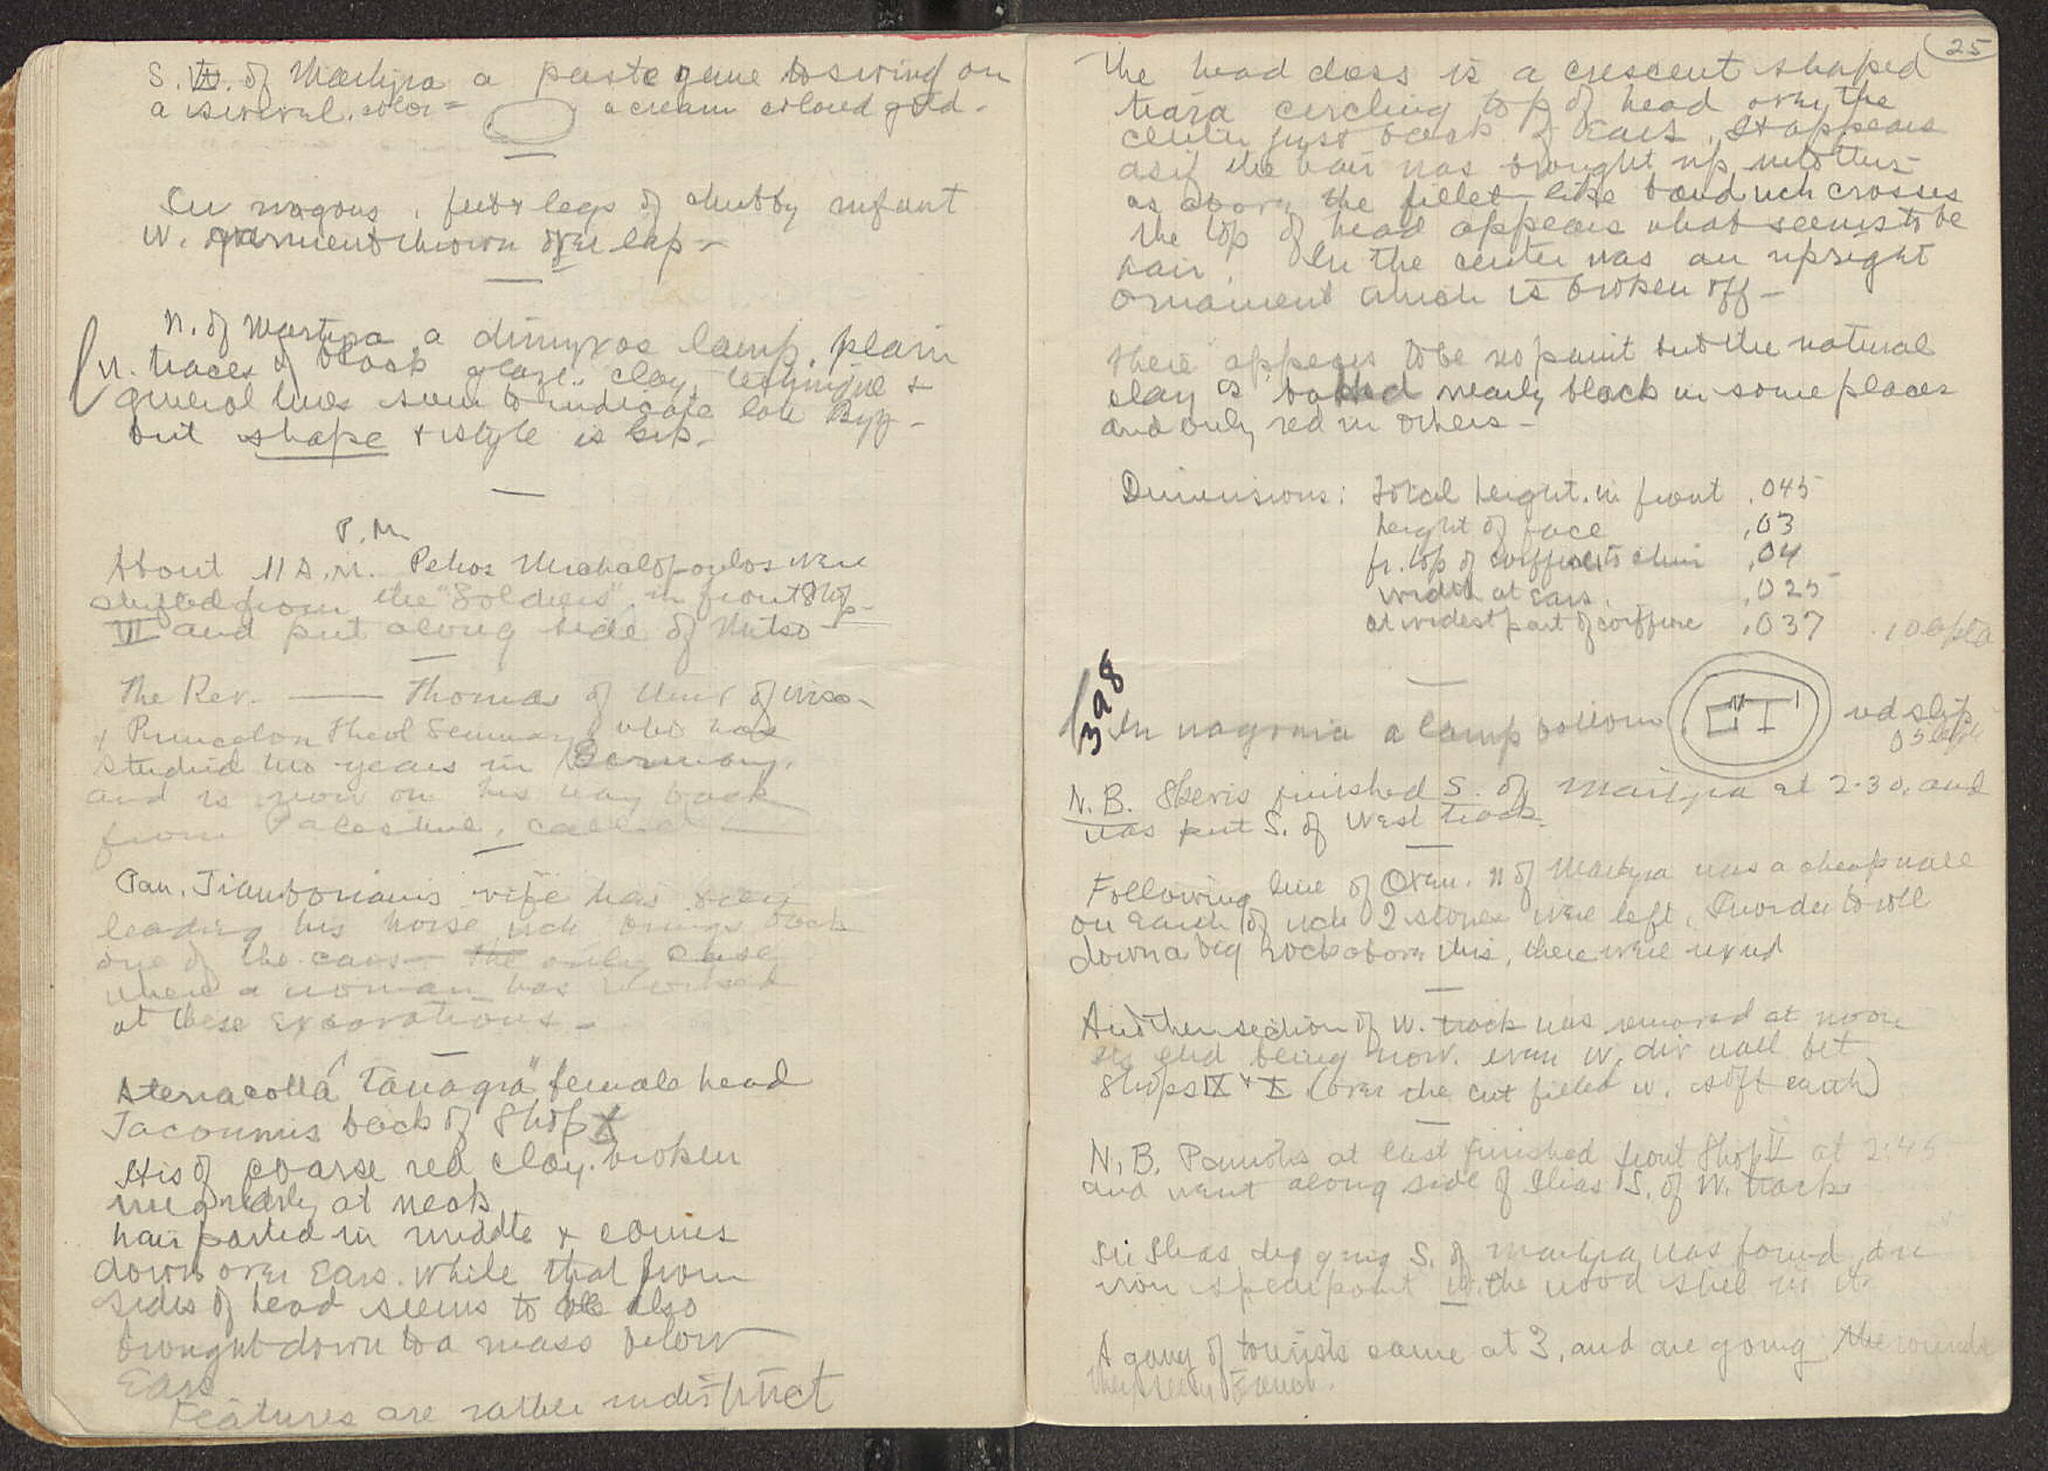 S. W. of Martyra a paste gem to swing on
a swivel. color = a cream colored gold -
In wagons, feet & legs of chubby infant
w. garment thrown over lap -
N. of Martyra a dimyxos lamp, plain
w. traces of black glaze. clay, technique &
general lines seem to indicate late Byz -
but shape & style is
P.M.
About 11 A.M. Petros Michalopoulos were
shifted from the "Soldiers" in front Shop
VI and put along side of Mitso
The Rev. —— Thomas of Univ of Wisc -
& Princeton Theol Seminary who has
studied two years in Germany,
and is now on his way back
from Palestine, called -
Pan. wife has been
leading his horse wch brings back
one of the cars - the only case
where a woman has worked
at these excavations -
A terracotta "Tanagra" female head
back of Shop X
It is of coarse red clay. broken
irregularly at neck
hair parted in middle & comes
down over Ears. while that from
sides of head seems to be also
brought down to a mass below
Ears
Features are rather indistinct
25
The head dress is a crescent shaped
tiara circling top of head over the
center just back of Ears. It appears
as if the hair was brought up into this
as above the fillet like band wch crosses
the top of head appears what seems to be
hair. In the center was an upright
ornament which is broken off -
There appears to be no paint but the natural
clay is baked nearly black in some places
and only red in others -
Dimensions: Total height. in front .045
height of face .03
fr. top of coiffure to chin .04
width at Ears. .025
at widest part of coiffure .037
398
In wagonia a lamp bottom red slip
N.B. finished S. of Martyra at 2.30, and
was put S. of West track.
Following line of Oven. N of Martyra was a cheap wall
on Earth of wch 2 stones were left. In order to roll
down a big rock above this, these were removed
Another section of W. track was removed at noon
its end being now. even w. div wall bet
Shops IX & X (over the cut filled w. soft earth)
N.B. at last finished front Shop V at 2:45
and went along side of Ilias S. of W. track
In Ilias digging S. of Martyra was found an
iron spearpoint w. the wood still in it.
A gang of tourists came at 3, and are going the rounds